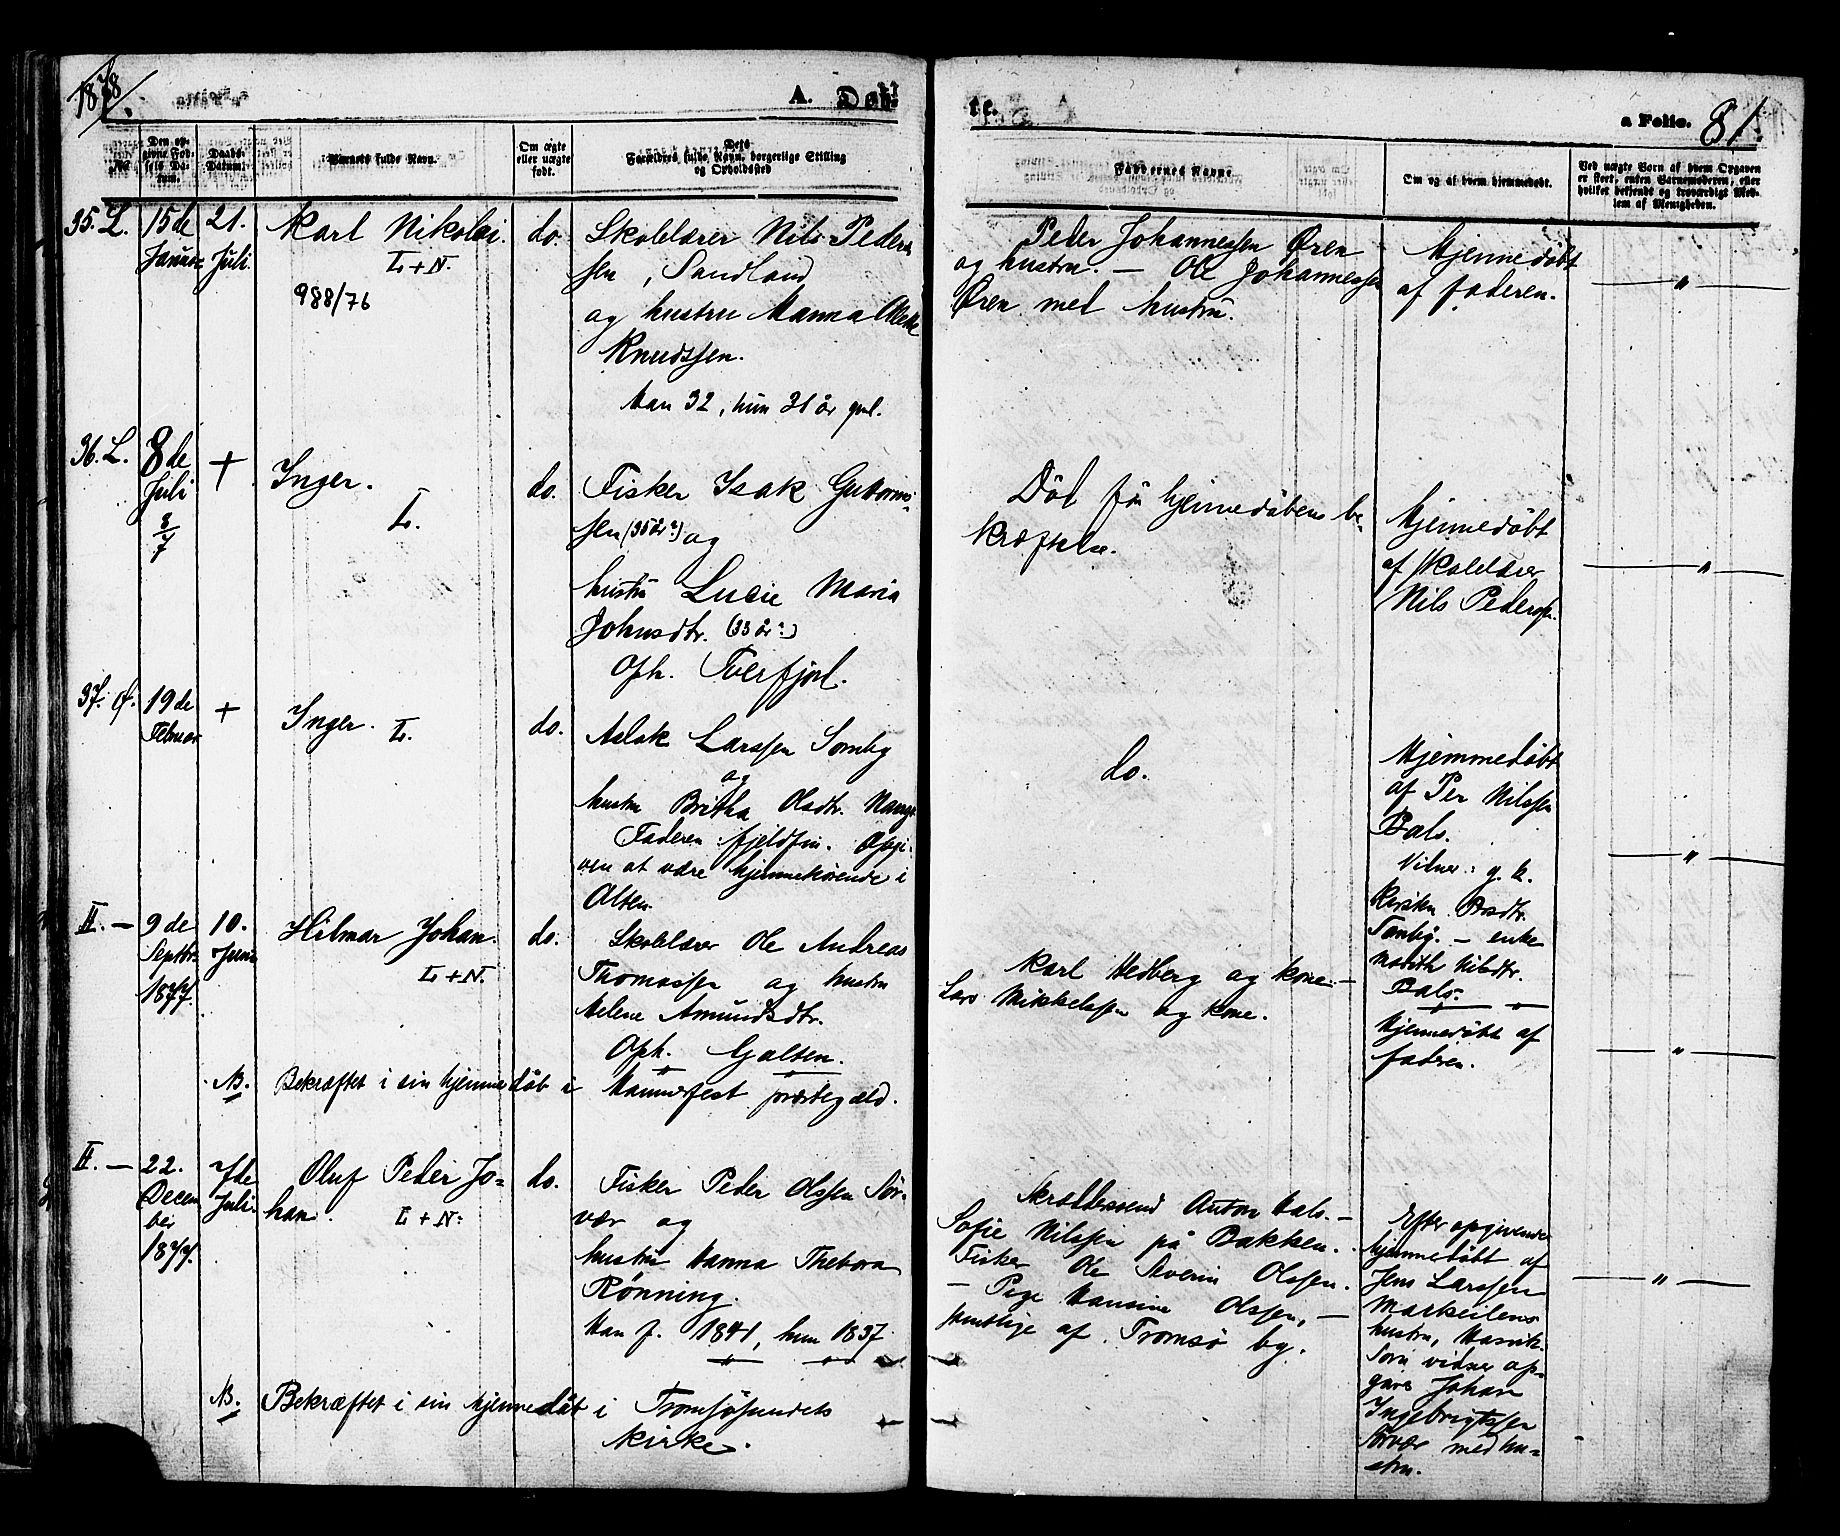 1878.
A. Døb-
te.
a Folio. 81.
No.
Den opgivne Fødsels Datum.
Daabs-Datum.
Barnets fulde Navn.
Om ægte eller uægte født.
Dets Forældres fulde Navn, borgerlige Stilling og Opholdssted
Faddernes Navne
Om og af hvem hjemmedøbt.
Ved uægte Barn af hvem Opgaven er skeet, enten Barnemoderen, eller hvilket bekjendt og troværdigt Medlem af Menigheden.
35. L.
15de
Januar
21.
Juli.
Karl Nikolai.
L+N.
988/76
do.
Skolelærer Nils Peder-
sen, Sandland
og hustru Hanna
Knudssen.
Han 32, hun 31 år gml.
Peder Johannessen Øren
og hustru. — Ole Johannessen
Øren med hustru.
Hjemmedøbt
af faderen.
"
36. L.
8de
Juli
8/7
+
Inger.
L.
do.
Fisker Isak Guttorm-
sen (35 år?) og
hustru Lucie Maria
Johnsdtr. (33 år?)
Oph. Tverfjord.
Død før hjemmedåbens be-
kræftelse.
Hjemmedøbt
af skolelærer
Nils Pedersen.
"
37. Ø.
19de
Februar
+
Inger.
L.
do.
Aslak Larssen Somby
og
hustru Britha Olsdtr.
Faderen fjeldfin. Opgi-
ven at være hjemmehørende i
Alten.
do.
Hjemmedøbt
af Per Nilssen
Bals.
Vidner: g. k.
Kirsten
— enke
Marith Nilsdtr.
Bals.
"
II. —
9de
Septbr.
1877.
10.
Juni
Hilmar Johan.
L+N.
do.
Skolelærer Ole Andreas
Thomassen og hustru
Helene Amundsdtr.
Oph. Galten.
Karl Hedberg og kone. —
Lars Mikkelsen og kone.
Hjemmedøbt af
fadren.
"
NB. Bekræftet i sin hjemmedåb i Hammerfest præstegæld.
II. —
22.
Decem-
ber
1877.
7de
Juli.
Oluf Peder Jo-
han.
L+N.
do.
Fisker Peder Olssen Sør-
vær og
hustru Hanna Thebora
Rønning.
Han f. 1841, hun 1837.
Skræddersvend Anton Hals. —
Sofie Nilssen på Bakken.
Fisker Ole Severin Olssen.
— Pige Hansine Olssen, —
samtlige af Tromsø by.
Efter opgivende
hjemmedøbt af
Jens Larssen
hustru, Hasvik.
Som vidner op-
gives Johan
Ingebrigtssen
Sørvær med hu-
stru.
"
NB. Bekræftet i sin hjemmedåb i Tromsøsundets
kirke.